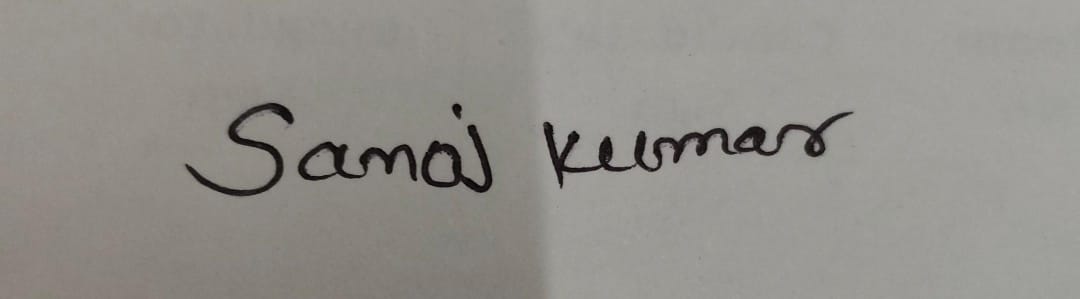 Sanoj Kumar